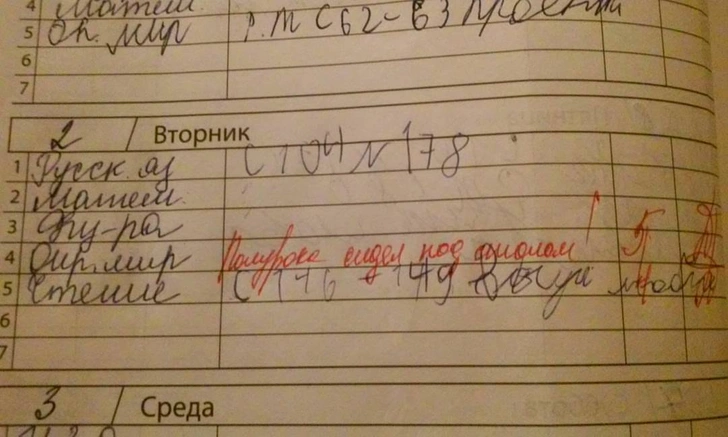 4 Матем.
5 Ок. мир р.т С 62-63 проекты
6
7
2 / Вторник
1 Русск. яз С 104 N 178
2 Матем.
3 Физ-ра
4 Окр. мир Полурока сидел под столом! 5
5 Чтение С 176-179
6
7
3 / Среда